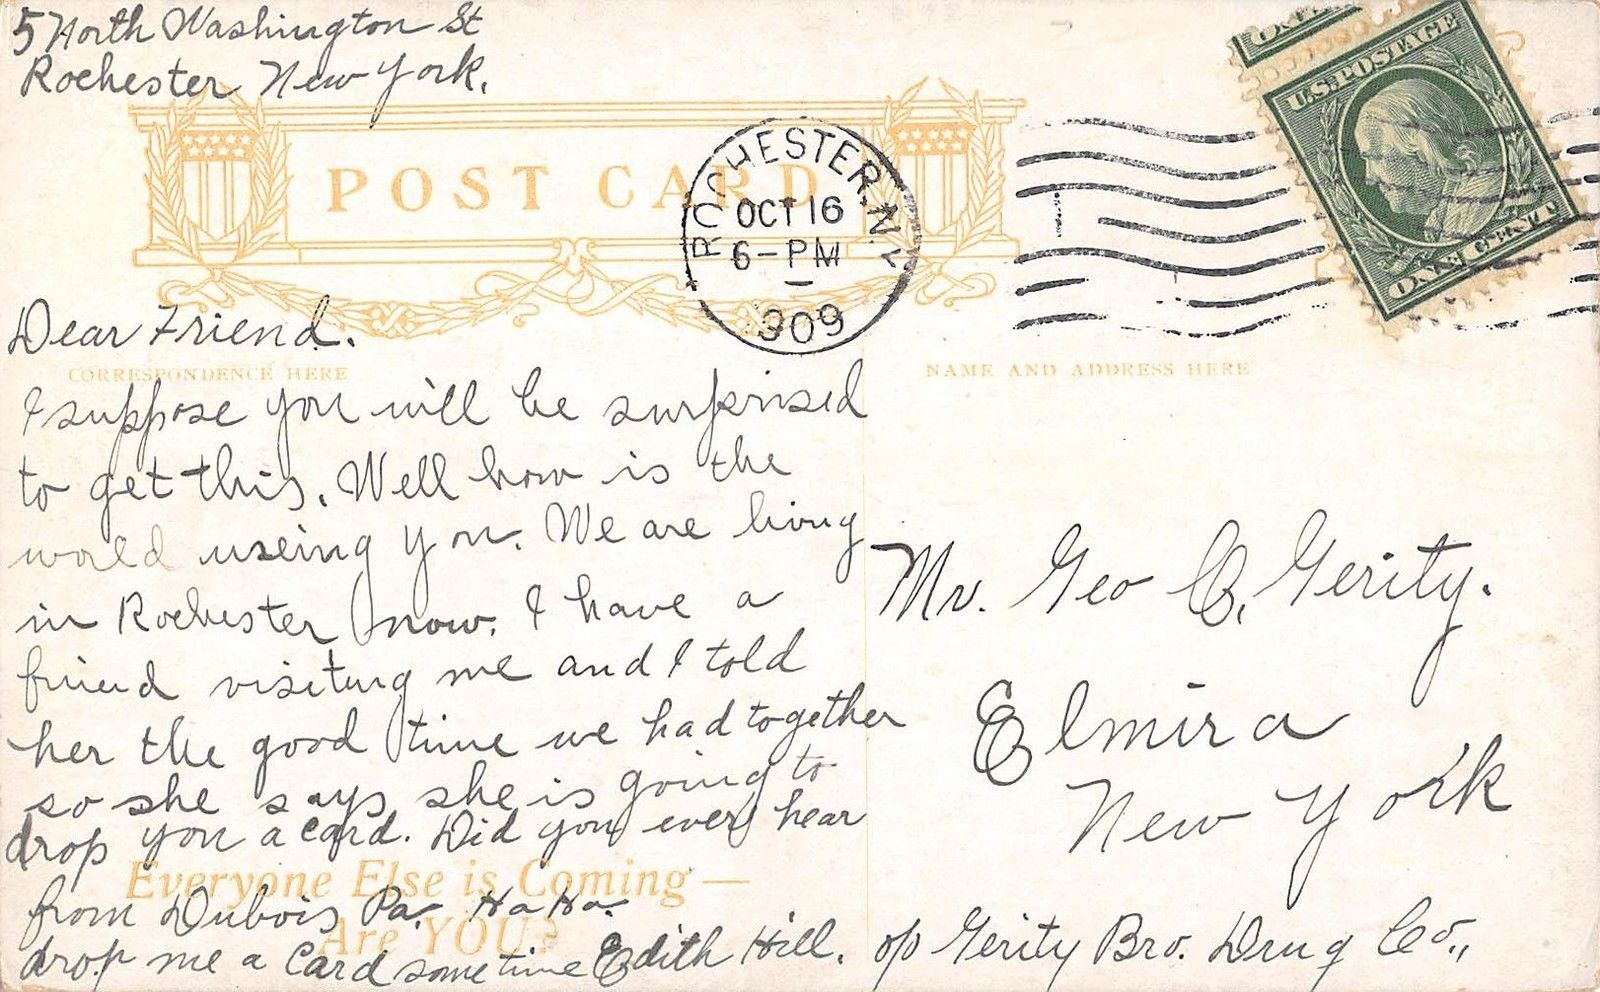 5 North Washington St
Rochester New York.
POST CARD
ROCHESTER, N.Y.
OCT 16
6-PM
1909
U.S. POSTAGE
ONE CENT
Dear Friend.
CORRESPONDENCE HERE
I suppose you will be surprised
to get this. Well how is the
world useing you. We are living
in Rochester now. I have a
friend visiting me and I told
her the good time we had together
so she says she is going to
drop you a card. Did you ever hear
Everyone Else is Coming —
from Dubois Pa. Ha Ha.
Are YOU?
drop me a Card sometime Edith Hill.
NAME AND ADDRESS HERE
Mr. Geo B. Gerity.
Elmira
New York
c/o Gerity Bro. Drug Co.,